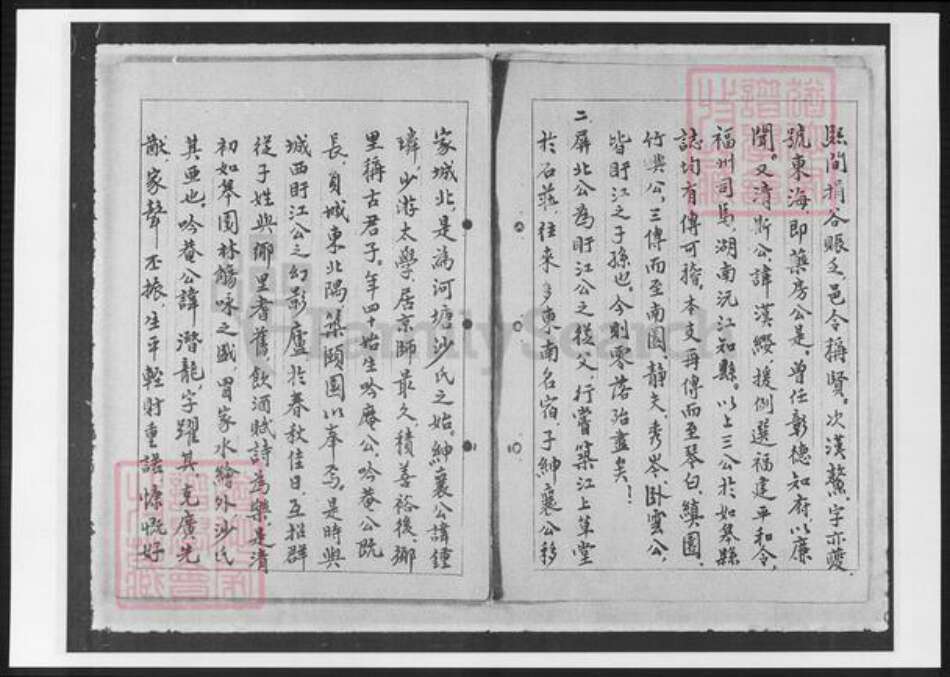 賑間捐谷賑乏，邑令稱賢。次漢鰲，字亦夔，
號東海，即藥房公是。曾任彰德知府，以廉
聞。又清斯公，諱漢纓，援例選福建平和令，
福州司馬，湖南沅江知縣。以上三公於如皋縣
誌均有傳可稽。本支再傳而至琴白、縝園、
竹輿公，三傳而至南園、靜夫、秀岑、臥雲公，
皆盱江之子孫也。今則零落殆盡矣！
二、屏北公為盱江公之從父行，嘗築江上草堂
於石莊，往來多東南名宿。子紳襄公移
家城北，是為河塘沙氏之始。紳襄公諱鍾
璘，少游太學，居京師最久，積善裕後，鄉
里稱古君子。年四十始生吟庵公，吟菴公既
長，負城東北隅築頤園以奉焉。是時與
城西盱江公之幻影廬於春秋佳日，互招群
從子姓與鄉里耆舊，飲酒賦詩為樂，是清
初如皋園林觴咏之盛，冒家水繪外沙氏
其亞也。吟菴公諱潛龍，字躍其，克廣先
猷，家聲丕振，生平輕財重諾，慷慨好
FamilySearch